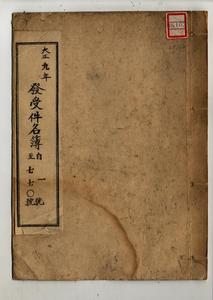 大正九年
發受件名簿
自一號
至七七〇號